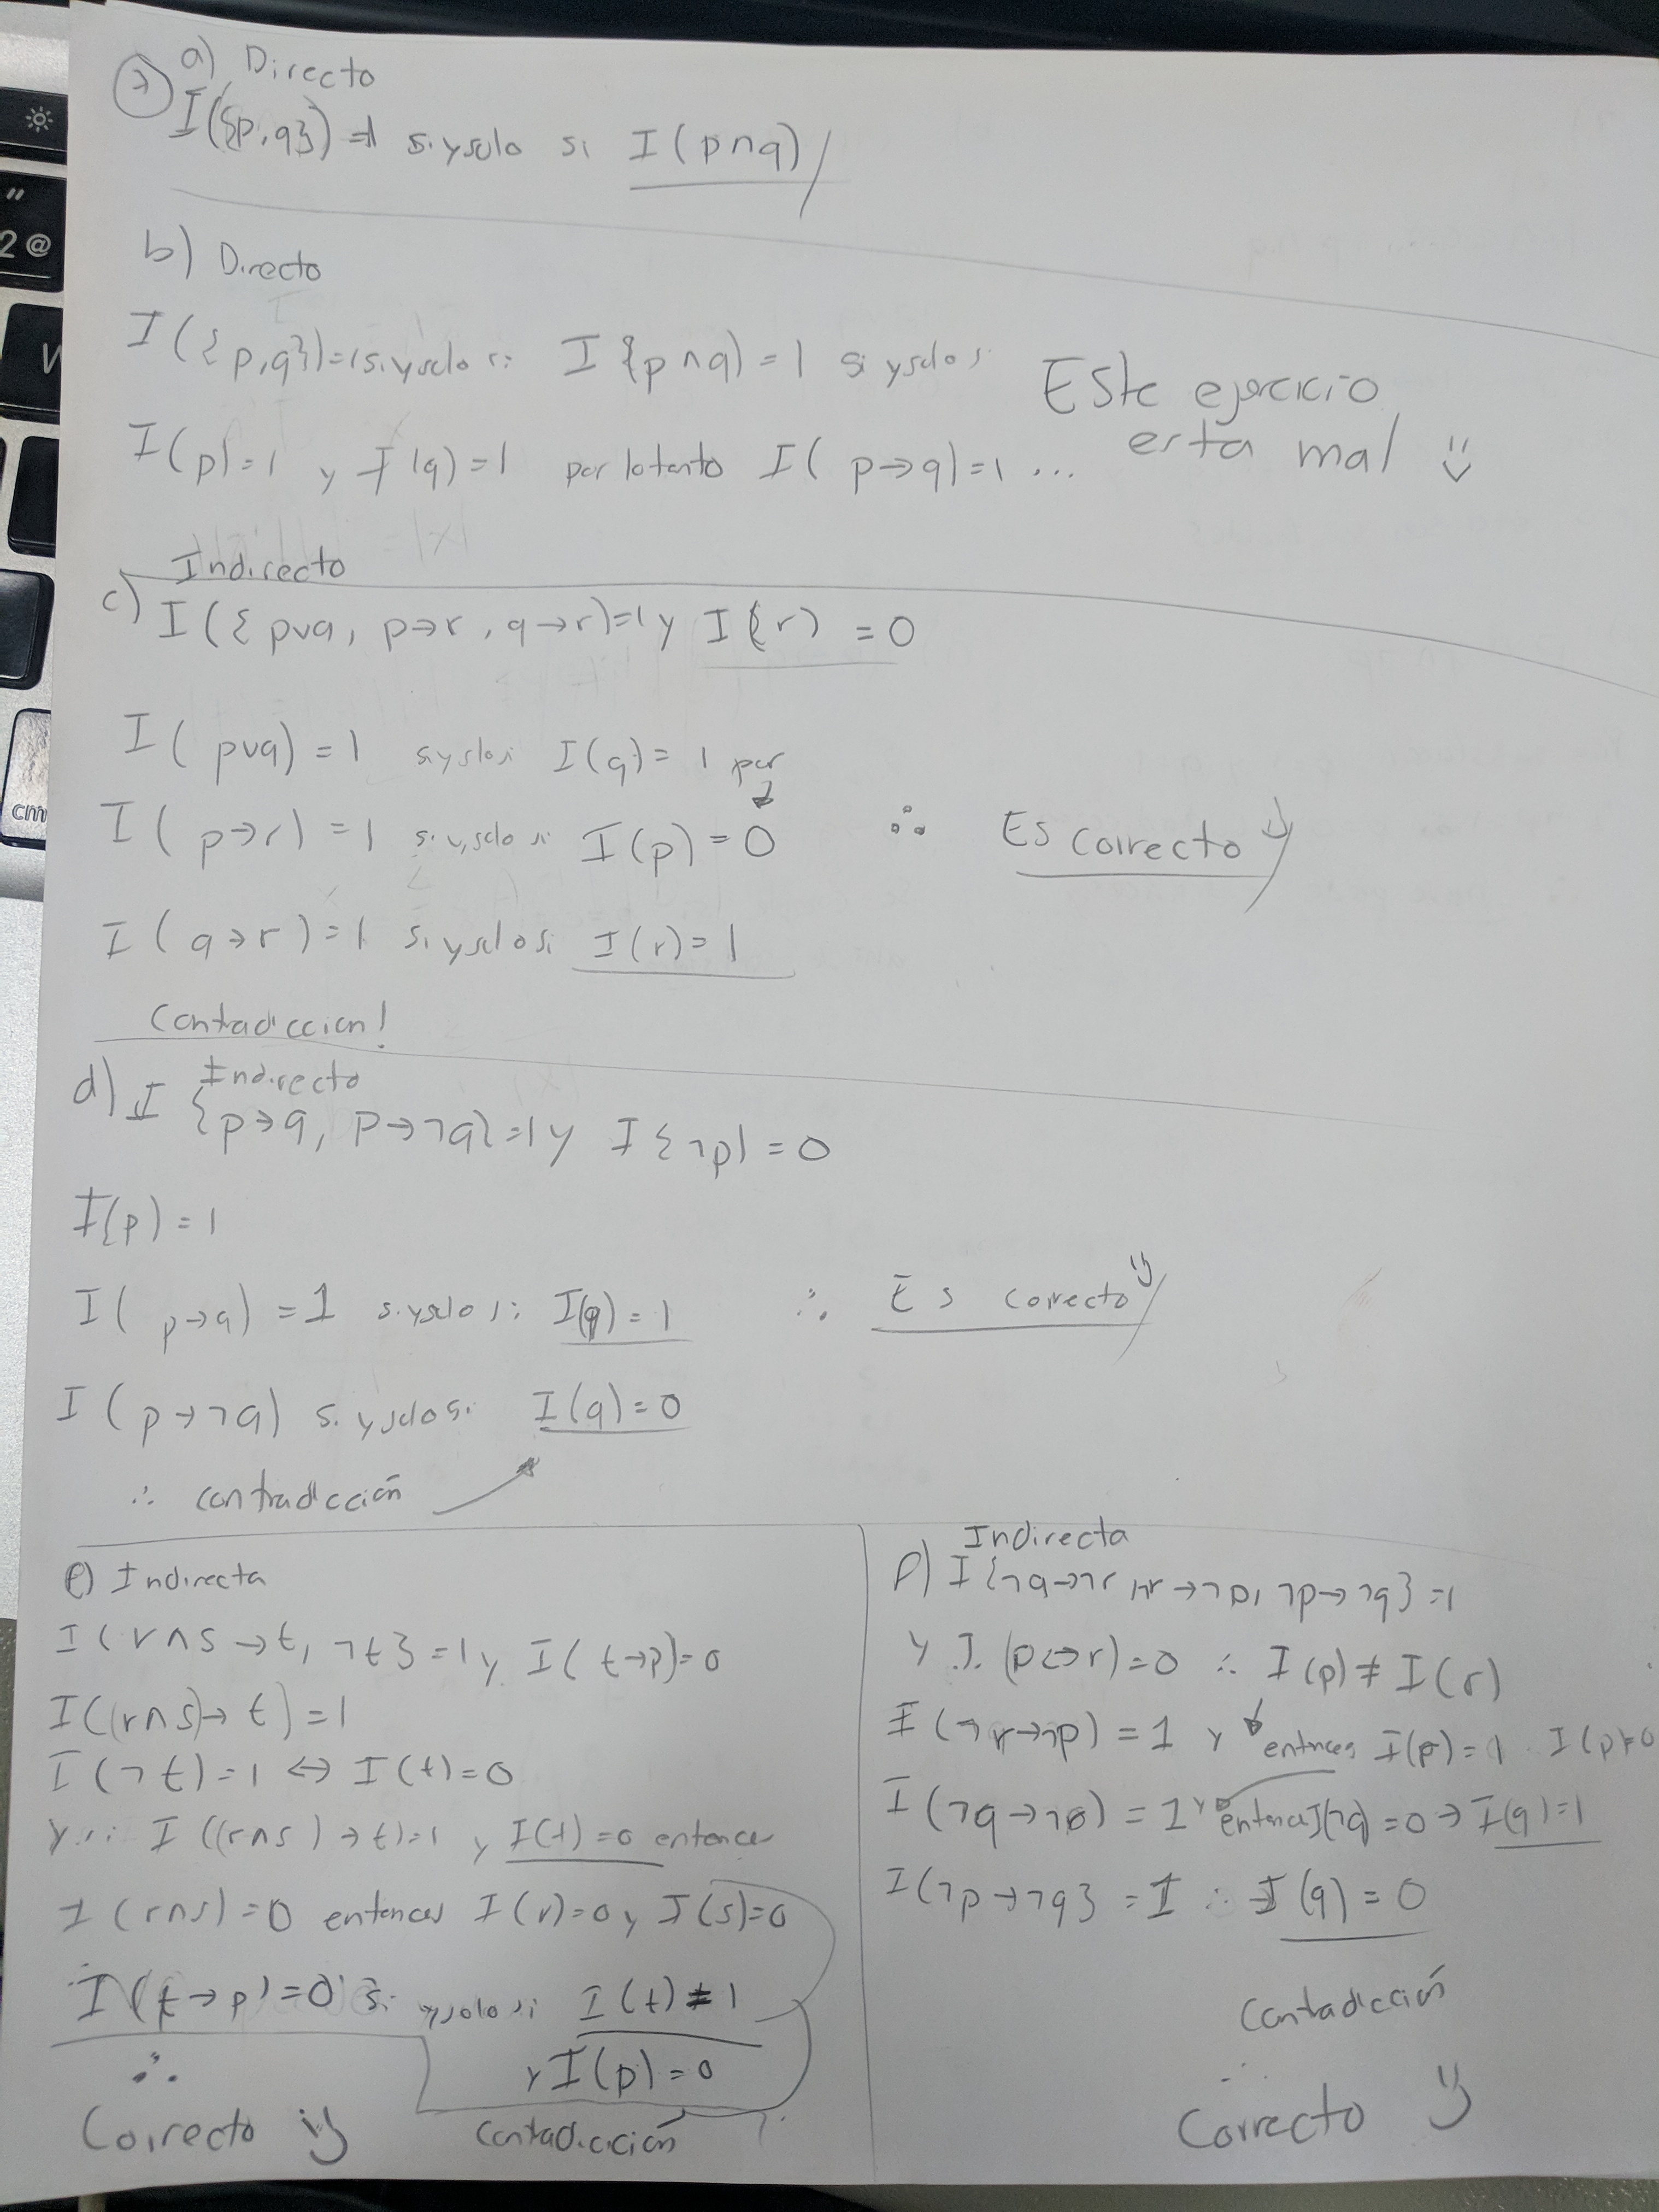 7) a) Directo
I({p,q})=1 si y solo si I(p∧q)
b) Directo
I({p,q})=1 si y solo si I{p∧q)=1 si y solo si
I(p)=1 y I(q)=1 por lo tanto I(p→q)=1 ...
Este ejercicio
esta mal
Indirecto
c) I({p∨q, p→r, q→r)=1 y I{r) = 0
I(p∨q)=1 si y solo si I(q)=1 por
I(p→r)=1 si y solo si I(p)=0
∴ Es correcto
I(q→r)=1 si y solo si I(r)=1
Contadiccion!
Indirecto
d) I {p→q, p→¬q}=1 y I{¬p)=0
I(p)=1
I(p→q)=1 si y solo si I(q)=1
∴ Es correcto
I(p→¬q) si y solo si I(q)=0
∴ contradicción
e) Indirecta
I(r∧s→t, ¬t}=1 y I(t→p)=0
I((r∧s)→t)=1
I(¬t)=1 ↔ I(t)=0
y si I((r∧s)→t)=1 y I(t)=0 entonces
I(r∧s)=0 entonces I(r)=0 y I(s)=0
I(t→p)=0 si y solo si I(t)=1
y I(p)=0
∴
Contadicición
Correcto
Indirecta
f) I{¬q→¬r, ¬r→¬p, ¬p→¬q}=1
y I(p↔r)=0 ∴ I(p)≠I(r)
I(¬r→¬p)=1 y entonces I(r)=1 I(p)=0
I(¬q→¬r)=1 y entonces I(¬q)=0 → I(q)=1
I(¬p→¬q}=1 ∴ I(q)=0
Contadicción
∴
Correcto
cm
2 @
"